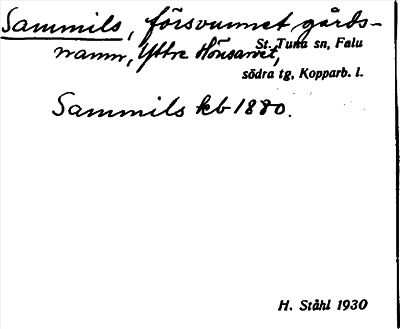 Sammils, försvunnet gårds-
namn, Yttre Hönsarvet,
St. Tuna sn, Falu
södra tg, Kopparb. l.
Sammils kb 1880.
H. Ståhl 1930